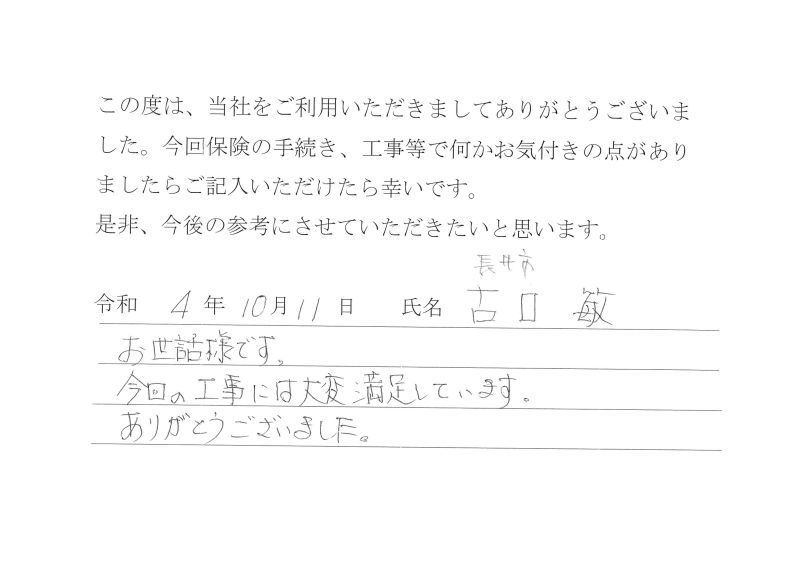 この度は、当社をご利用いただきましてありがとうございま
した。今回保険の手続き、工事等で何かお気付きの点があり
ましたらご記入いただけたら幸いです。
是非、今後の参考にさせていただきたいと思います。
長井市
令和 4 年 10月11 日 氏名 古口 敏
お世話様です。
今回の工事には大変満足しています。
ありがとうございました。